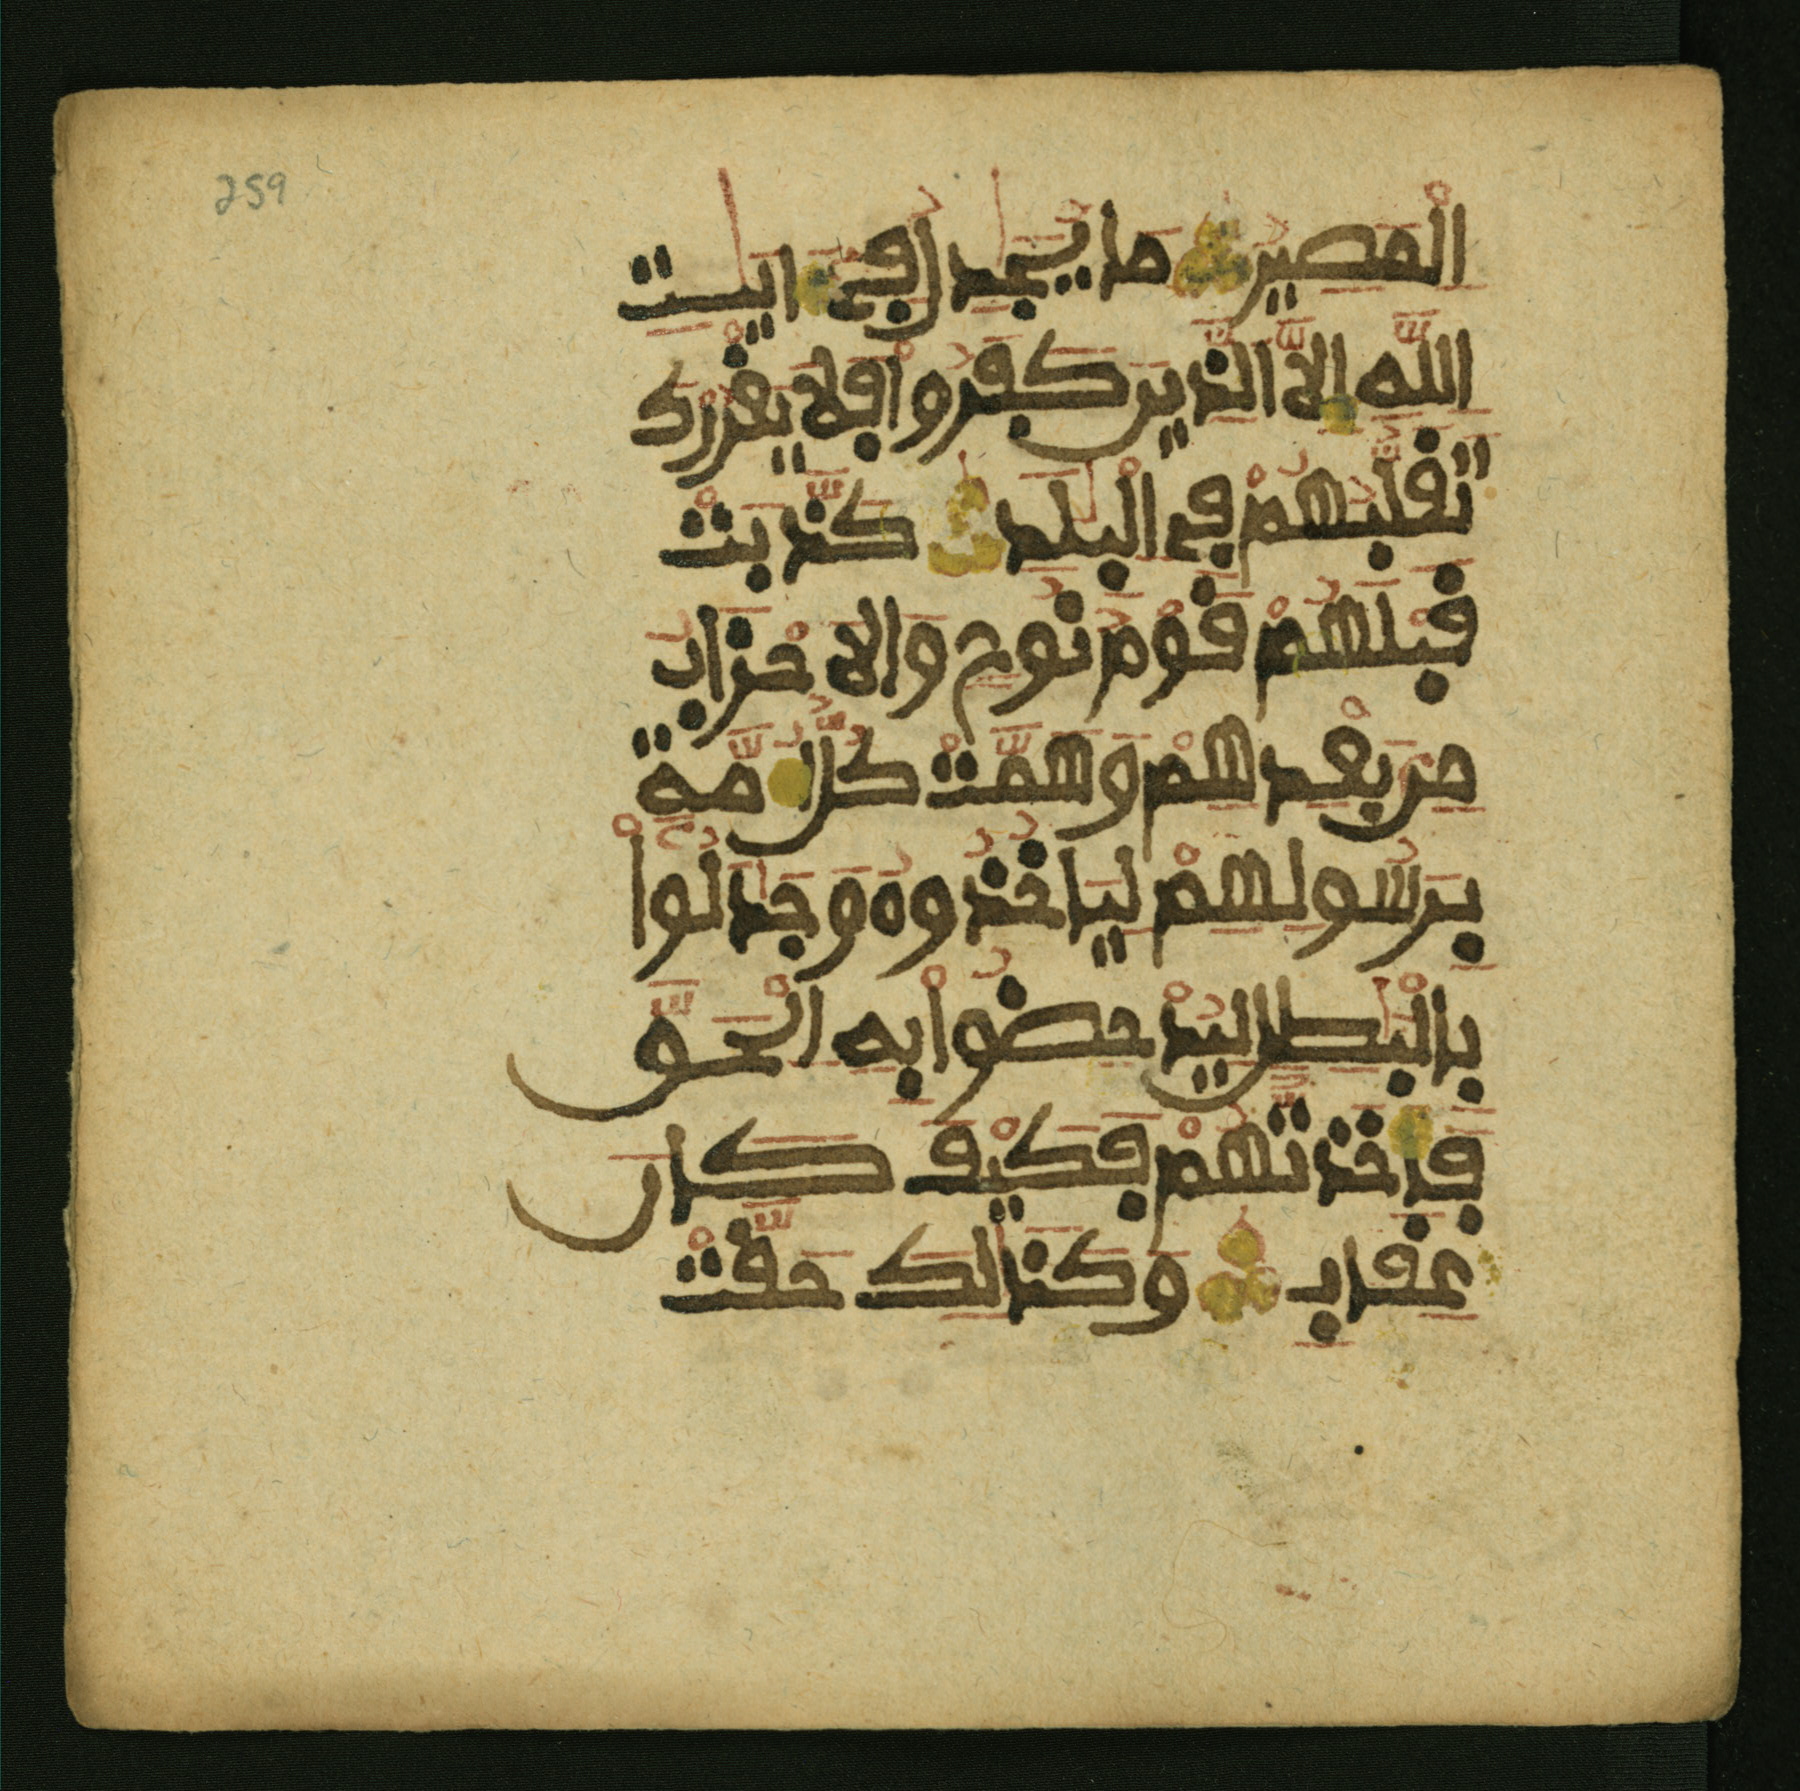 259
الْمَصِيرُ مَا يُجَٰدِلُ فِي ءَايَٰتِ
اللَّهِ إِلَّا الَّذِينَ كَفَرُواْ فَلَا يَغْرُرْكَ
تَقَلُّبُهُمْ فِي الْبِلَٰدِ كَذَّبَتْ
قَبْلَهُمْ قَوْمُ نُوحٍ وَالَاحْزَابُ
مِنۢ بَعْدِهِمْ وَهَمَّتْ كُلُّ أُمَّةِۢ
بِرَسُولِهِمْ لِيَاخُذُوهُ وَجَٰدَلُواْ
بِالْبَٰطِلِ لِيُدْحِضُواْ بِهِ الْحَقَّ
فَأَخَذتُّهُمْ فَكَيْفَ كَانَ
عِقَابِ وَكَذَٰلِكَ حَقَّتْ